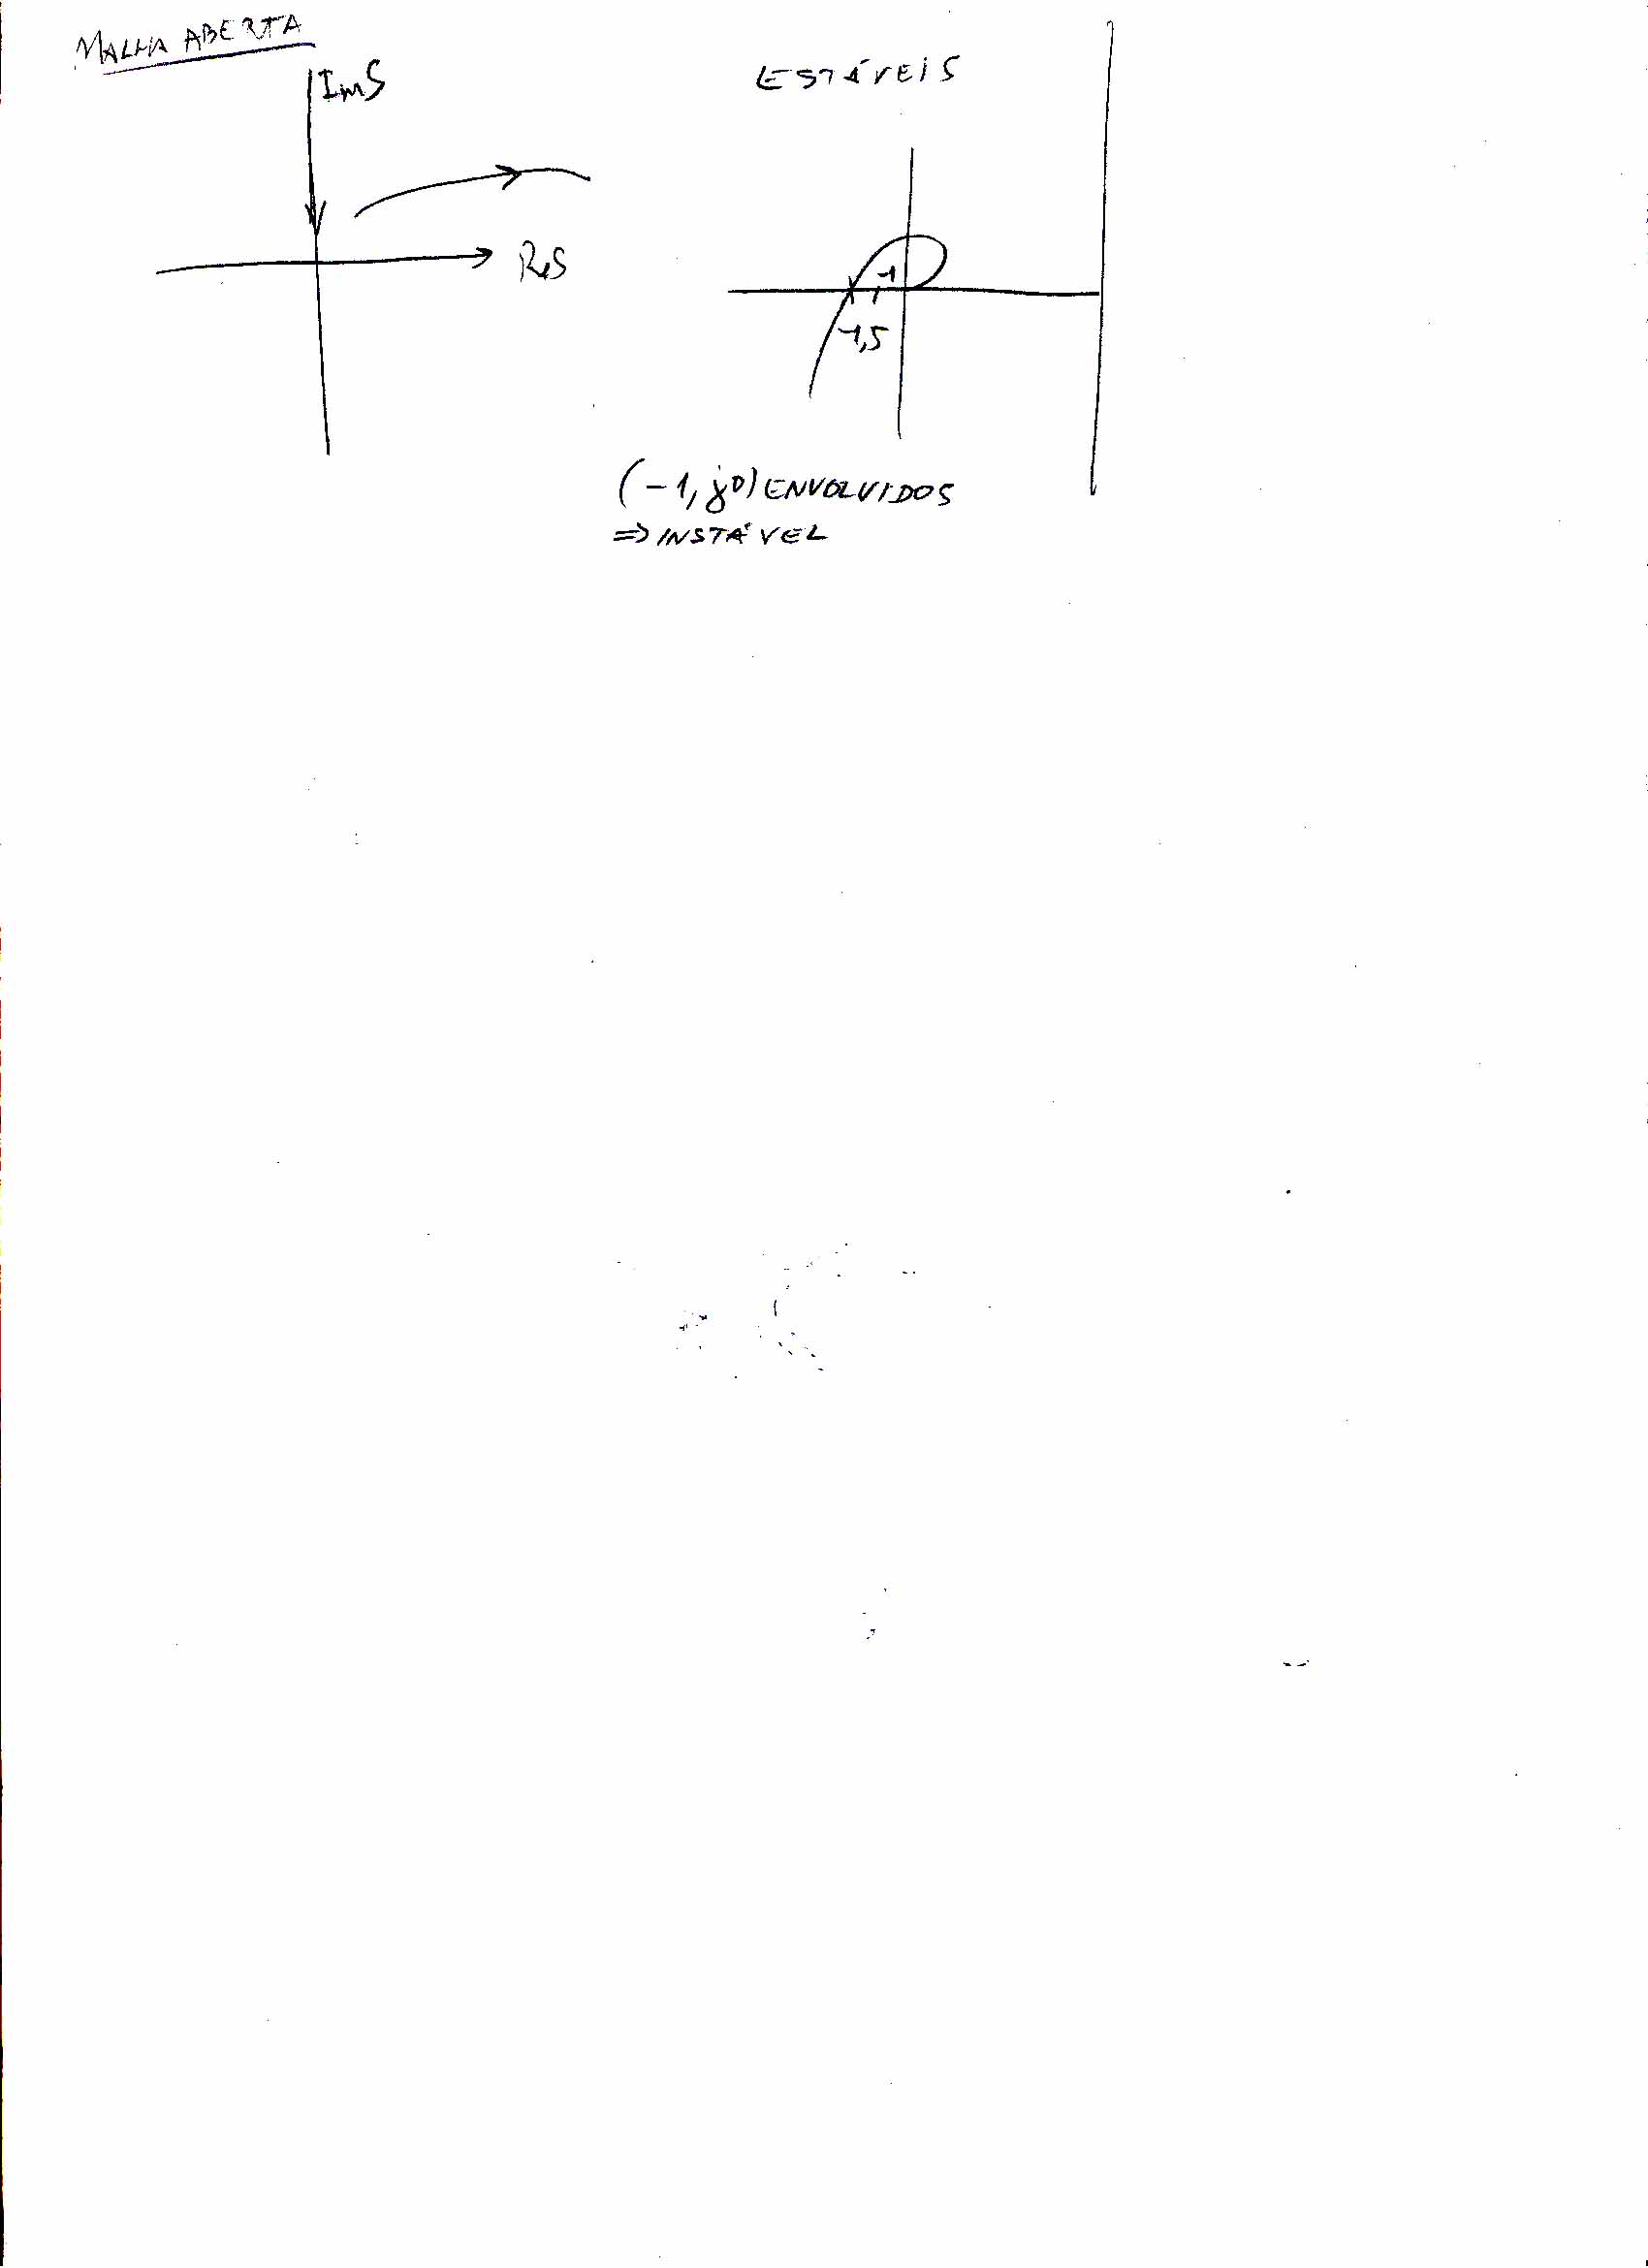 MALHA ABERTA
ImS
ReS
ESTÁVEIS
-1
-1,5
(-1, j0) ENVOLVIDOS
⇒ INSTÁVEL